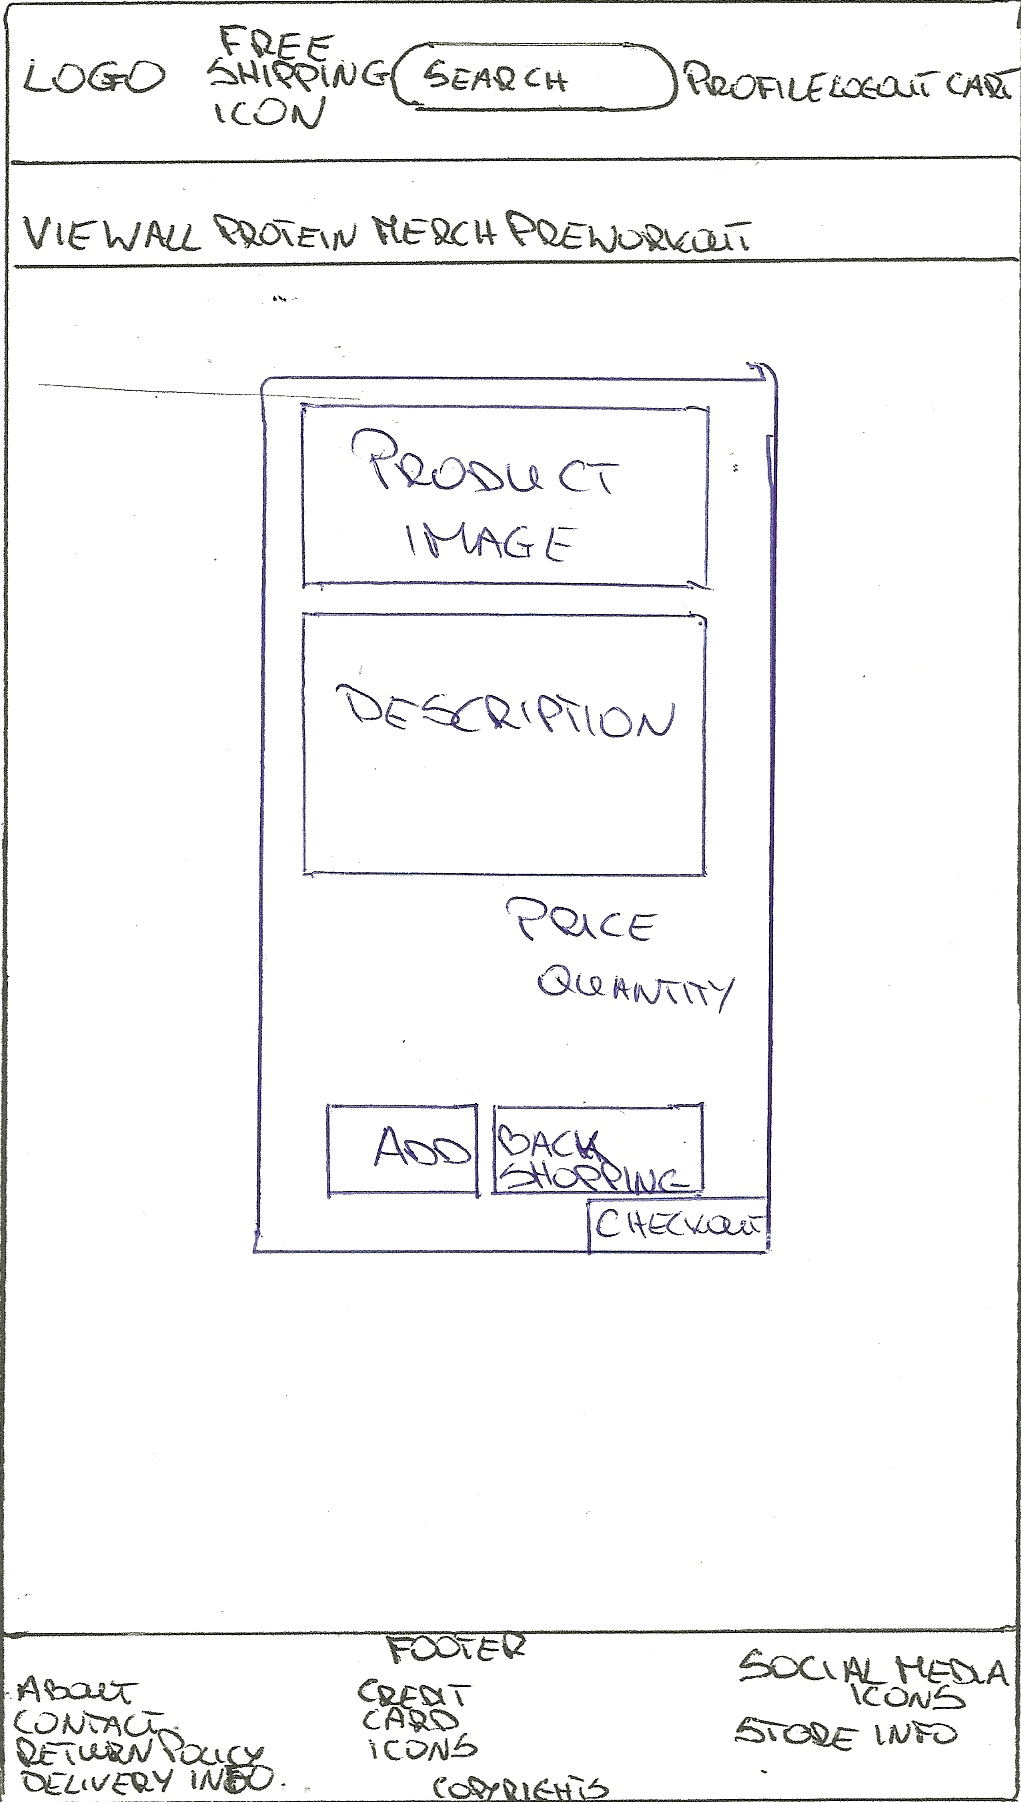 LOGO
FREE
SHIPPING
ICON
SEARCH
PROFILE LOGOUT CART
VIEW ALL PROTEIN MERCH PREWORKOUT
PRODUCT
IMAGE
DESCRIPTION
PRICE
QUANTITY
ADD
BACK
SHOPPING
CHECKOUT
FOOTER
ABOUT
CONTACT
RETURN POLICY
DELIVERY INFO.
CREDIT
CARD
ICONS
COPYRIGHTS
SOCIAL MEDIA
ICONS
STORE INFO